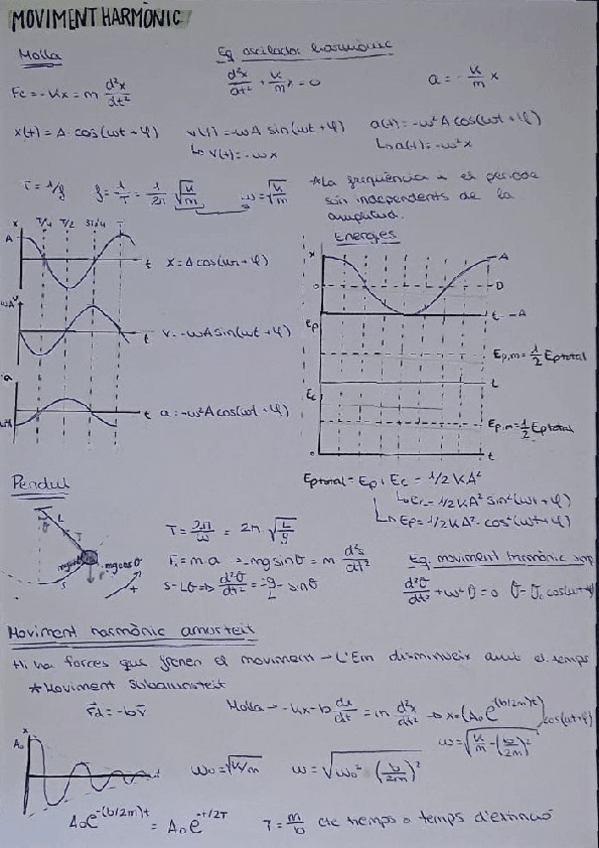 MOVIMENT HARMÒNIC
Molla
Eq oscilador harmònic
Fe = -kx = m d²x/dt²
d²x/dt² + k/m x = 0
a = -k/m x
x(t) = A · cos(ωt + φ)
v(t) = -ωA sin(ωt + φ)
a(t) = -ω²A cos(ωt + φ)
↳ v(t) = -ωx
↳ a(t) = -ω²x
T = 1/f
f = 1/T = 1/2π √k/m → ω = √k/m
* La freqüència i el període
són independents de la
amplitud.
Energies
x T/4 T/2 3T/4 T
A
t
x = A cos(ωt + φ)
ωA
t
v = -ωA sin(ωt + φ)
a
t
a = -ω²A cos(ωt + φ)
x
A
0
0
t -A
Ep
Ep,m = 1/2 Eptotal
Ec
Ep,m = 1/2 Eptotal
0
t
Eptotal = Ep + Ec = 1/2 KA²
↳ Ec = 1/2 KA² sin²(ωt + φ)
↳ Ep = 1/2 KA² · cos²(ωt + φ)
Pèndul
L
T
θ
mg cos θ
s
+
T = 2π/ω = 2π √L/g
F = m·a → -mg sinθ = m d²s/dt²
s = Lθ ⇒ d²θ/dt² = -g/L sinθ
Eq. moviment harmònic simp
d²θ/dt² + ω²θ = 0
θ = θ₀ cos(ωt + φ)
Moviment harmònic amorteït
Hi ha forces que frenen el moviment → L'Em disminueix amb el temps
* Moviment Subamorteït
Fd = -bv
Molla → -kx - b dx/dt = m d²x/dt² → x = (A₀ e^(b/2m)t) cos(ωt + φ)
ω = √k/m - (b/2m)²
x
A₀
t
ω₀ = √k/m
ω = √ω₀² - (b/2m)²
A₀e^-(b/2m)t = A₀e^-t/2τ
τ = m/b cte temps o temps d'extinció